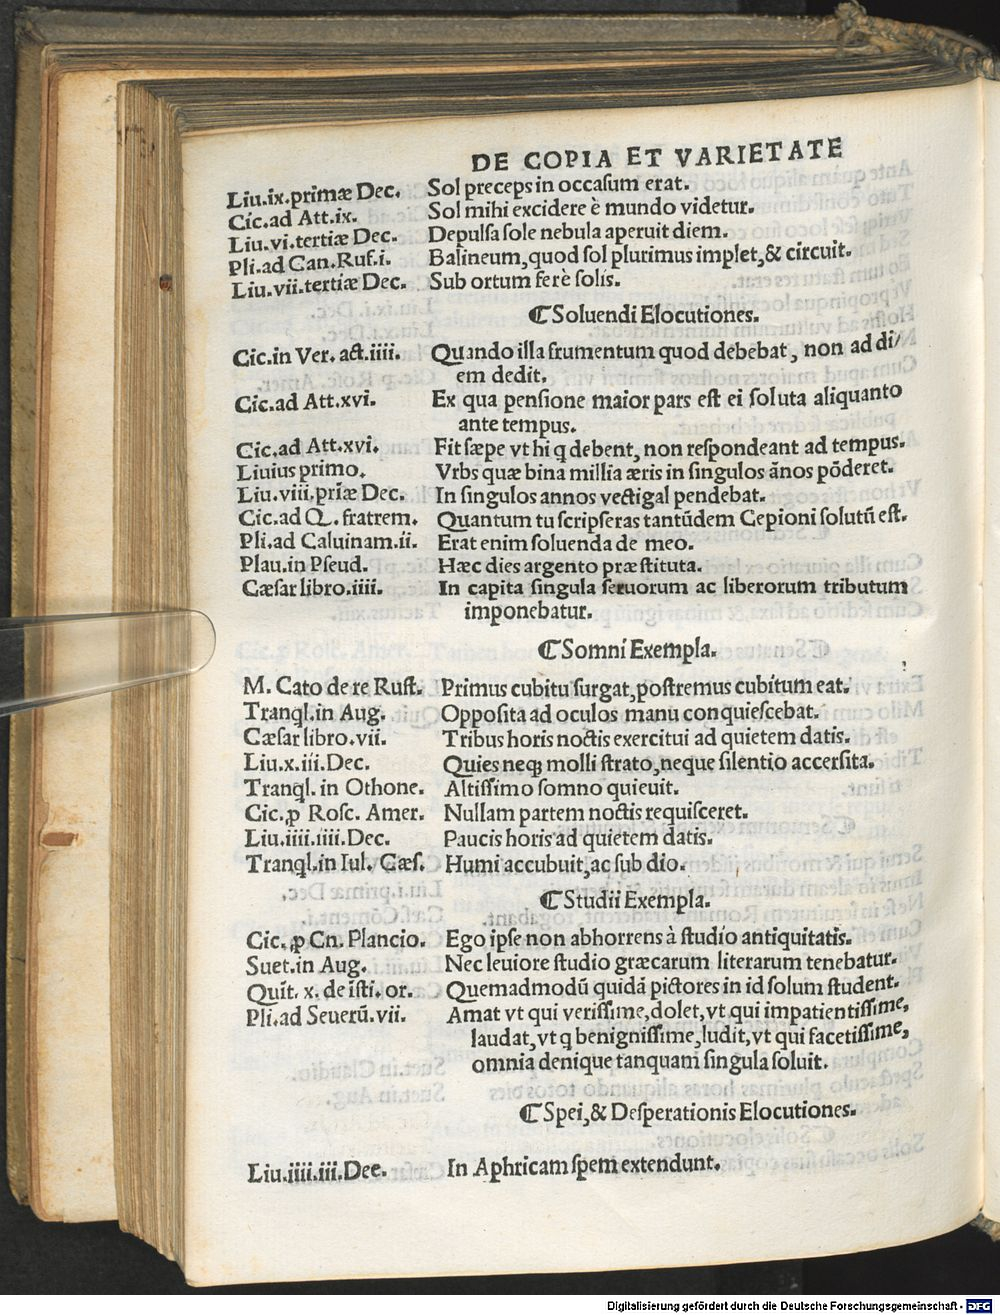 DE COPIA ET VARIETATE
Liu.ix.primæ Dec. Sol preceps in occasum erat.
Cic.ad Att.ix. Sol mihi excidere è mundo videtur.
Liu.vi.tertiæ Dec. Depulsa sole nebula aperuit diem.
Pli.ad Can.Ruf.i. Balineum,quod sol plurimus implet,& circuit.
Liu.vii.tertiæ Dec. Sub ortum ferè solis.
⸿Soluendi Elocutiones.
Cic.in Ver. act.iiii. Quando illa frumentum quod debebat, non ad di/
em dedit.
Cic.ad Att.xvi. Ex qua pensione maior pars est ei soluta aliquanto
ante tempus.
Cic.ad Att.xvi. Fit sæpe vt hi q debent, non respondeant ad tempus.
Liuius primo. Vrbs quæ bina millia æris in singulos ãnos põderet.
Liu.viii.prīæ Dec. In singulos annos vectigal pendebat.
Cic.ad Q. fratrem. Quantum tu scripseras tantūdem Cepioni solutū est.
Pli.ad Caluinam.ii. Erat enim soluenda de meo.
Plau.in Pseud. Hæc dies argento præstituta.
Cæsar libro.iiii. In capita singula seruorum ac liberorum tributum
imponebatur.
⸿Somni Exempla.
M. Cato de re Rust. Primus cubitu surgat,postremus cubitum eat.
Tranql.in Aug. Opposita ad oculos manu conquiescebat.
Cæsar libro.vii. Tribus horis noctis exercitui ad quietem datis.
Liu.x.iii.Dec. Quies neqꝫ molli strato,neque silentio accersita.
Tranql. in Othone. Altissimo somno quieuit.
Cic.ꝓ Rosc. Amer. Nullam partem noctis requisceret.
Liu.iiii.iiii.Dec. Paucis horis ad quietem datis.
Tranql.in Iul. Cæs. Humi accubuit,ac sub dio.
⸿Studii Exempla.
Cic.ꝓ Cn. Plancio. Ego ipse non abhorrens à studio antiquitatis.
Suet.in Aug. Nec leuiore studio græcarum literarum tenebatur.
Quīt. x. de īsti. or. Quemadmodū quidā pictores in id solum student.
Pli.ad Seuerū.vii. Amat vt qui verissime,dolet,vt qui impatientissime,
laudat,vt q benignissime,ludit,vt qui facetissime,
omnia denique tanquam singula soluit.
⸿Spei,& Desperationis Elocutiones.
Liu.iiii.iii.Dec. In Aphricam spem extendunt.
Digitalisierung gefördert durch die Deutsche Forschungsgemeinschaft - DFG